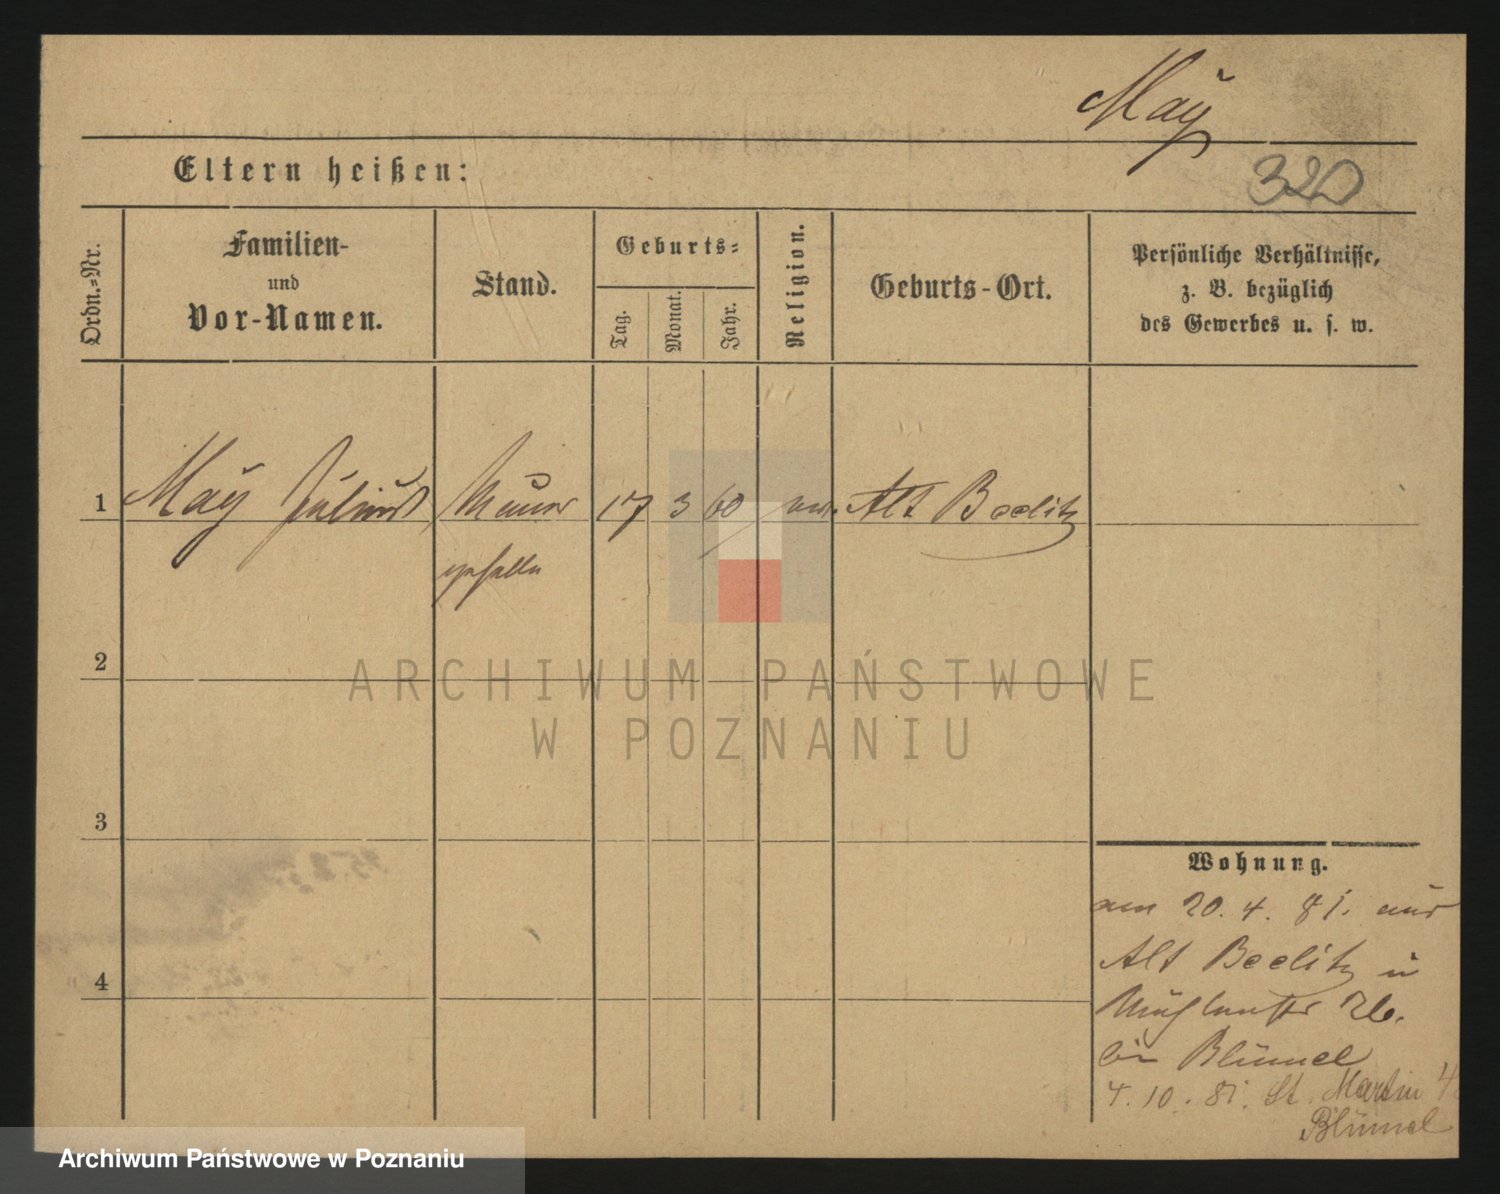 Maÿ
320
Eltern heißen:
Ordn.=Nr.
Familien-
und
Vor-Namen.
Stand.
Geburts=
Tag.
Monat.
Jahr.
Religion.
Geburts-Ort.
Persönliche Verhältnisse,
z. B. bezüglich
des Gewerbes u. s. w.
1 Maÿ Julius Maurer 17 3 60 Alt Beelitz
2
ARCHIWUM PAŃSTWOWE
W POZNANIU
3
4
Wohnung.
am 20. 4. 81. aus
Alt Beelitz
Mühlenstr 26.
bei Blümel
4. 10. 81. St. Martin
Blümel
Archiwum Państwowe w Poznaniu